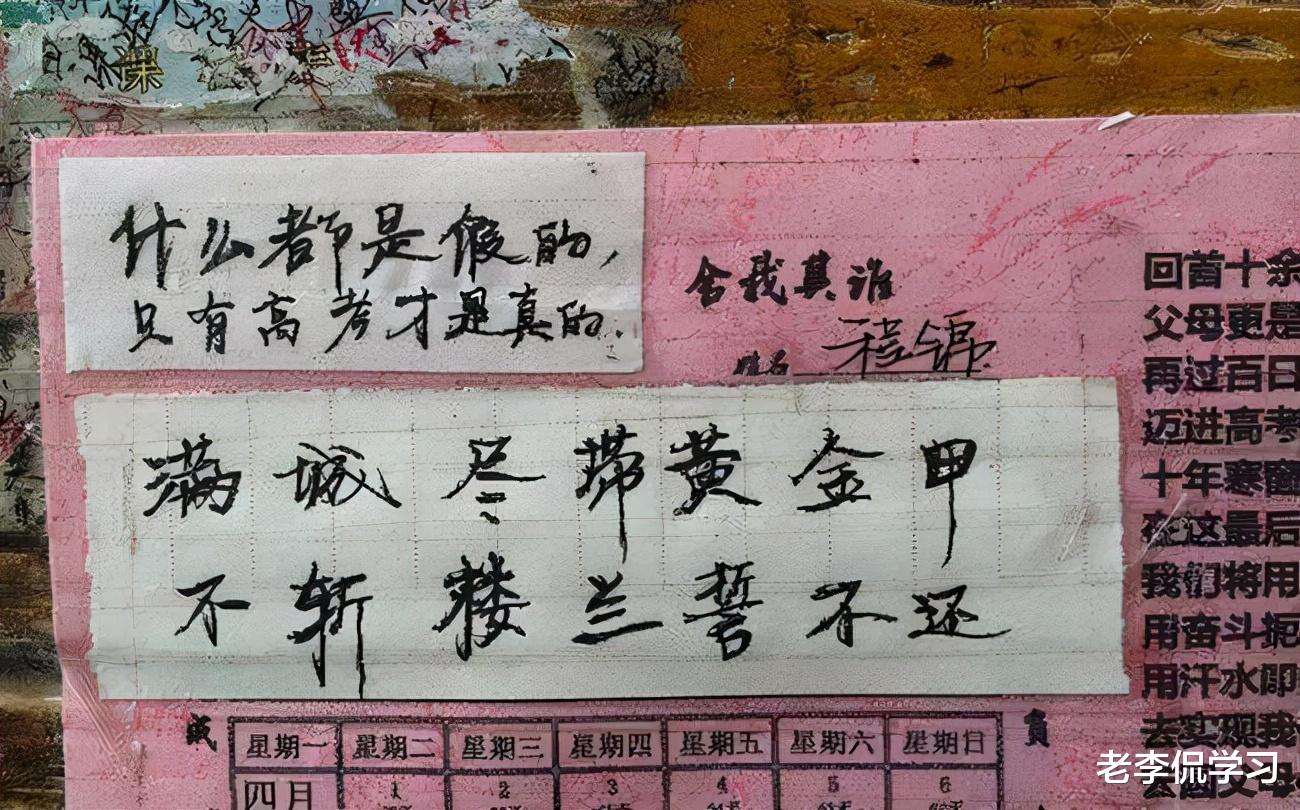 课
什么都是假的,
只有高考才是真的.
舍我其谁
姓名
满城尽带黄金甲
不斩楼兰誓不还
回首十余
父母更是
再过百日
迈进高考
十年寒窗
在这最后
我们将用
用奋斗把
用汗水
去实现我
去回父母
成 负
星期一 星期二 星期三 星期四 星期五 星期六 星期日
四月 1 2 3 4 5 6
老李侃学习